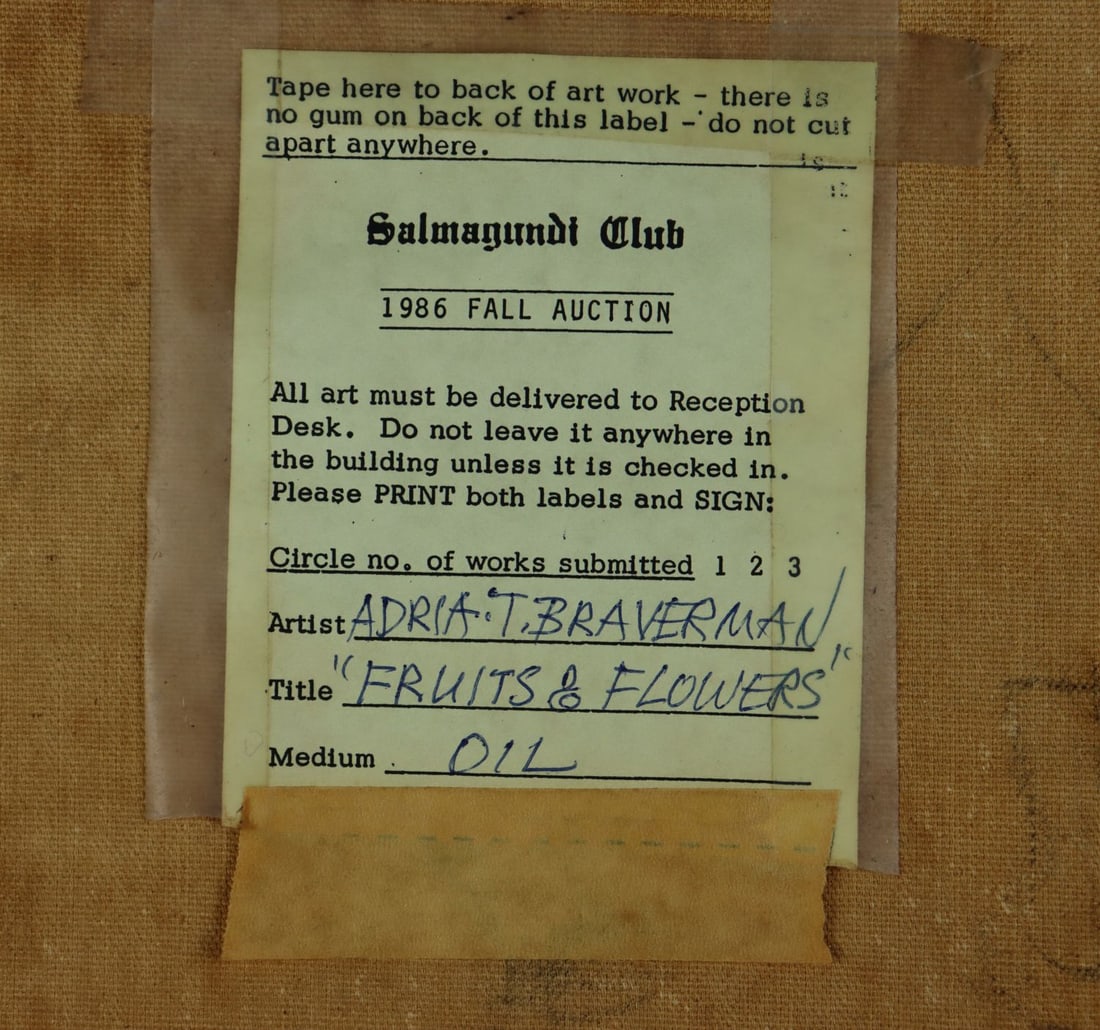 Tape here to back of art work - there is
no gum on back of this label - do not cut
apart anywhere.
Salmagundi Club
1986 FALL AUCTION
All art must be delivered to Reception
Desk. Do not leave it anywhere in
the building unless it is checked in.
Please PRINT both labels and SIGN:
Circle no. of works submitted 1 2 3
Artist ADRIA T. BRAVERMAN
Title "FRUITS & FLOWERS"
Medium OIL